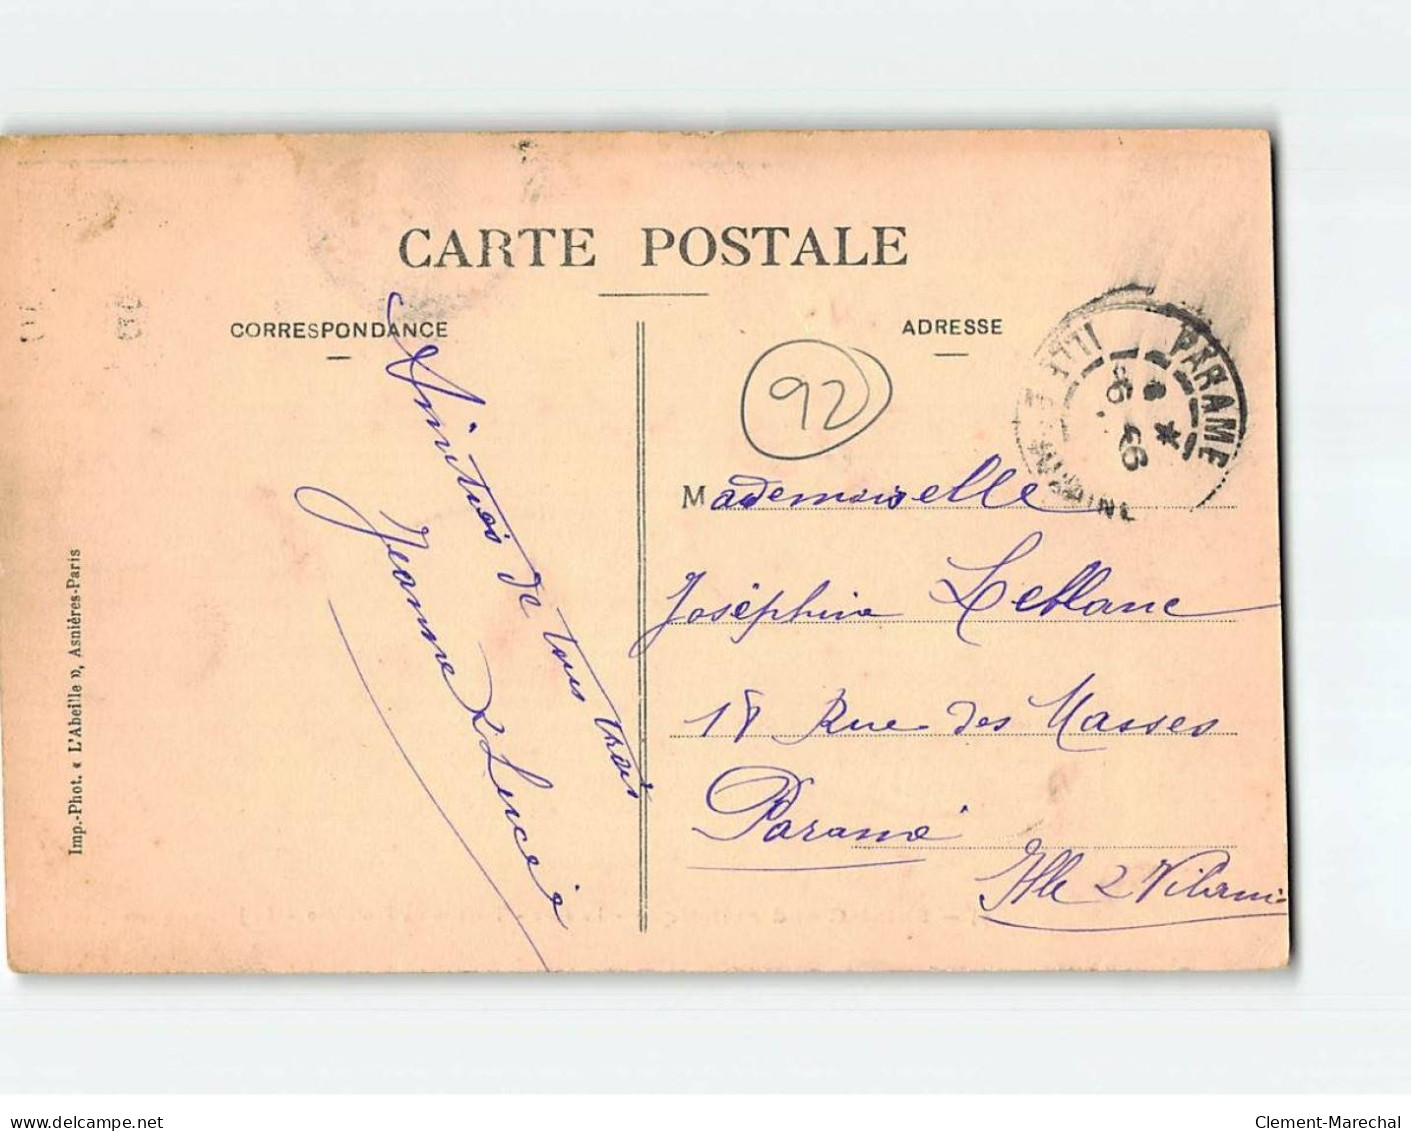 CARTE POSTALE
CORRESPONDANCE
ADRESSE
92
PARAME
ILLE
Amitiés de tous trois
Jeanne & Lucie
Mademoiselle
Joséphine Leblanc
18 Rue des Masses
Paramé
Ille & Vilaine
Imp.-Phot. « L'Abeille », Asnières-Paris
www.delcampe.net
Clement-Marechal